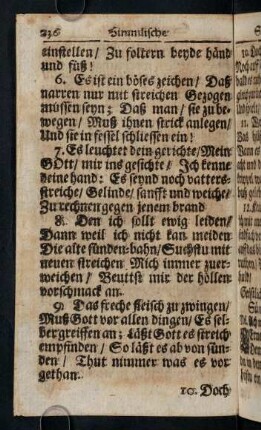 236 Himmlische
einstellen / Zu foltern beyde händ
und füß!
6. Es ist ein böses zeichen / Daß
narren nur mit streichen Gezogen
müssen seyn; Daß man / sie zu be-
wegen / Muß ihnen strick anlegen /
Und sie in fessel schliessen ein!
7. Es leuchtet dein gerichte / Mein
GOtt / mir ins gesichte / Ich kenne
deine hand: Es seynd noch vatters-
streiche / Gelinde / sanfft und weiche /
Zu rechnen gegen jenem brand
8. Den ich sollt ewig leiden /
Dann weil ich nicht kan meiden
Die alte sünden-bahn / Suchstu mit
neuen streichen Mich immer zuer-
weichen / Beutst mir der höllen
vorschmack an.
9. Das freche fleisch zu zwingen /
Muß Gott vor allen dingen / Es sel-
ber greiffen an; Läßt Gott es streich
empfinden / So läßt es ab von sün-
den / Thut nimmer was es vor
gethan.
10. Doch